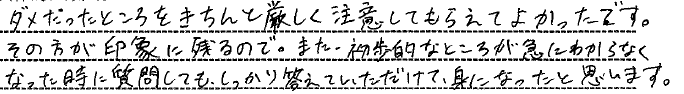 ダメだったところをきちんと厳しく注意してもらえてよかったです。
その方が印象に残るので。また、初歩的なところが急にわからなく
なった時に質問しても、しっかり答えていただけて、身になったと思います。